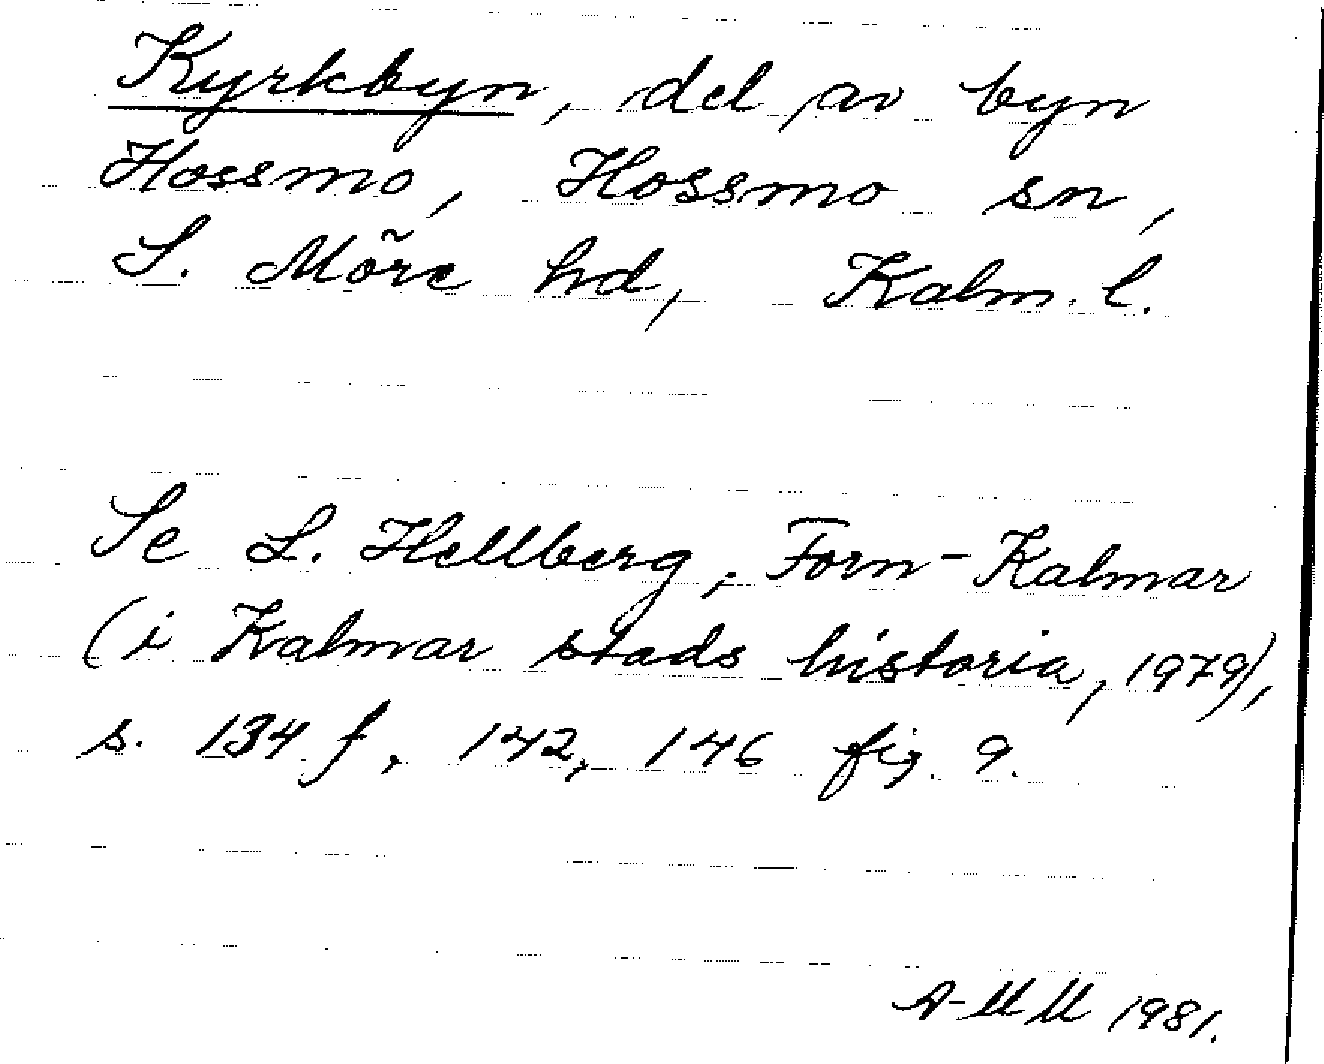 Kyrkbyn, del av byn
Hossmo, Hossmo sn,
S. Möre hd, Kalm. l.
Se L. Hellberg, Forn-Kalmar
(i Kalmar stads historia, 1979),
s. 134 f, 142, 146 fig. 9.
A-MM 1981.